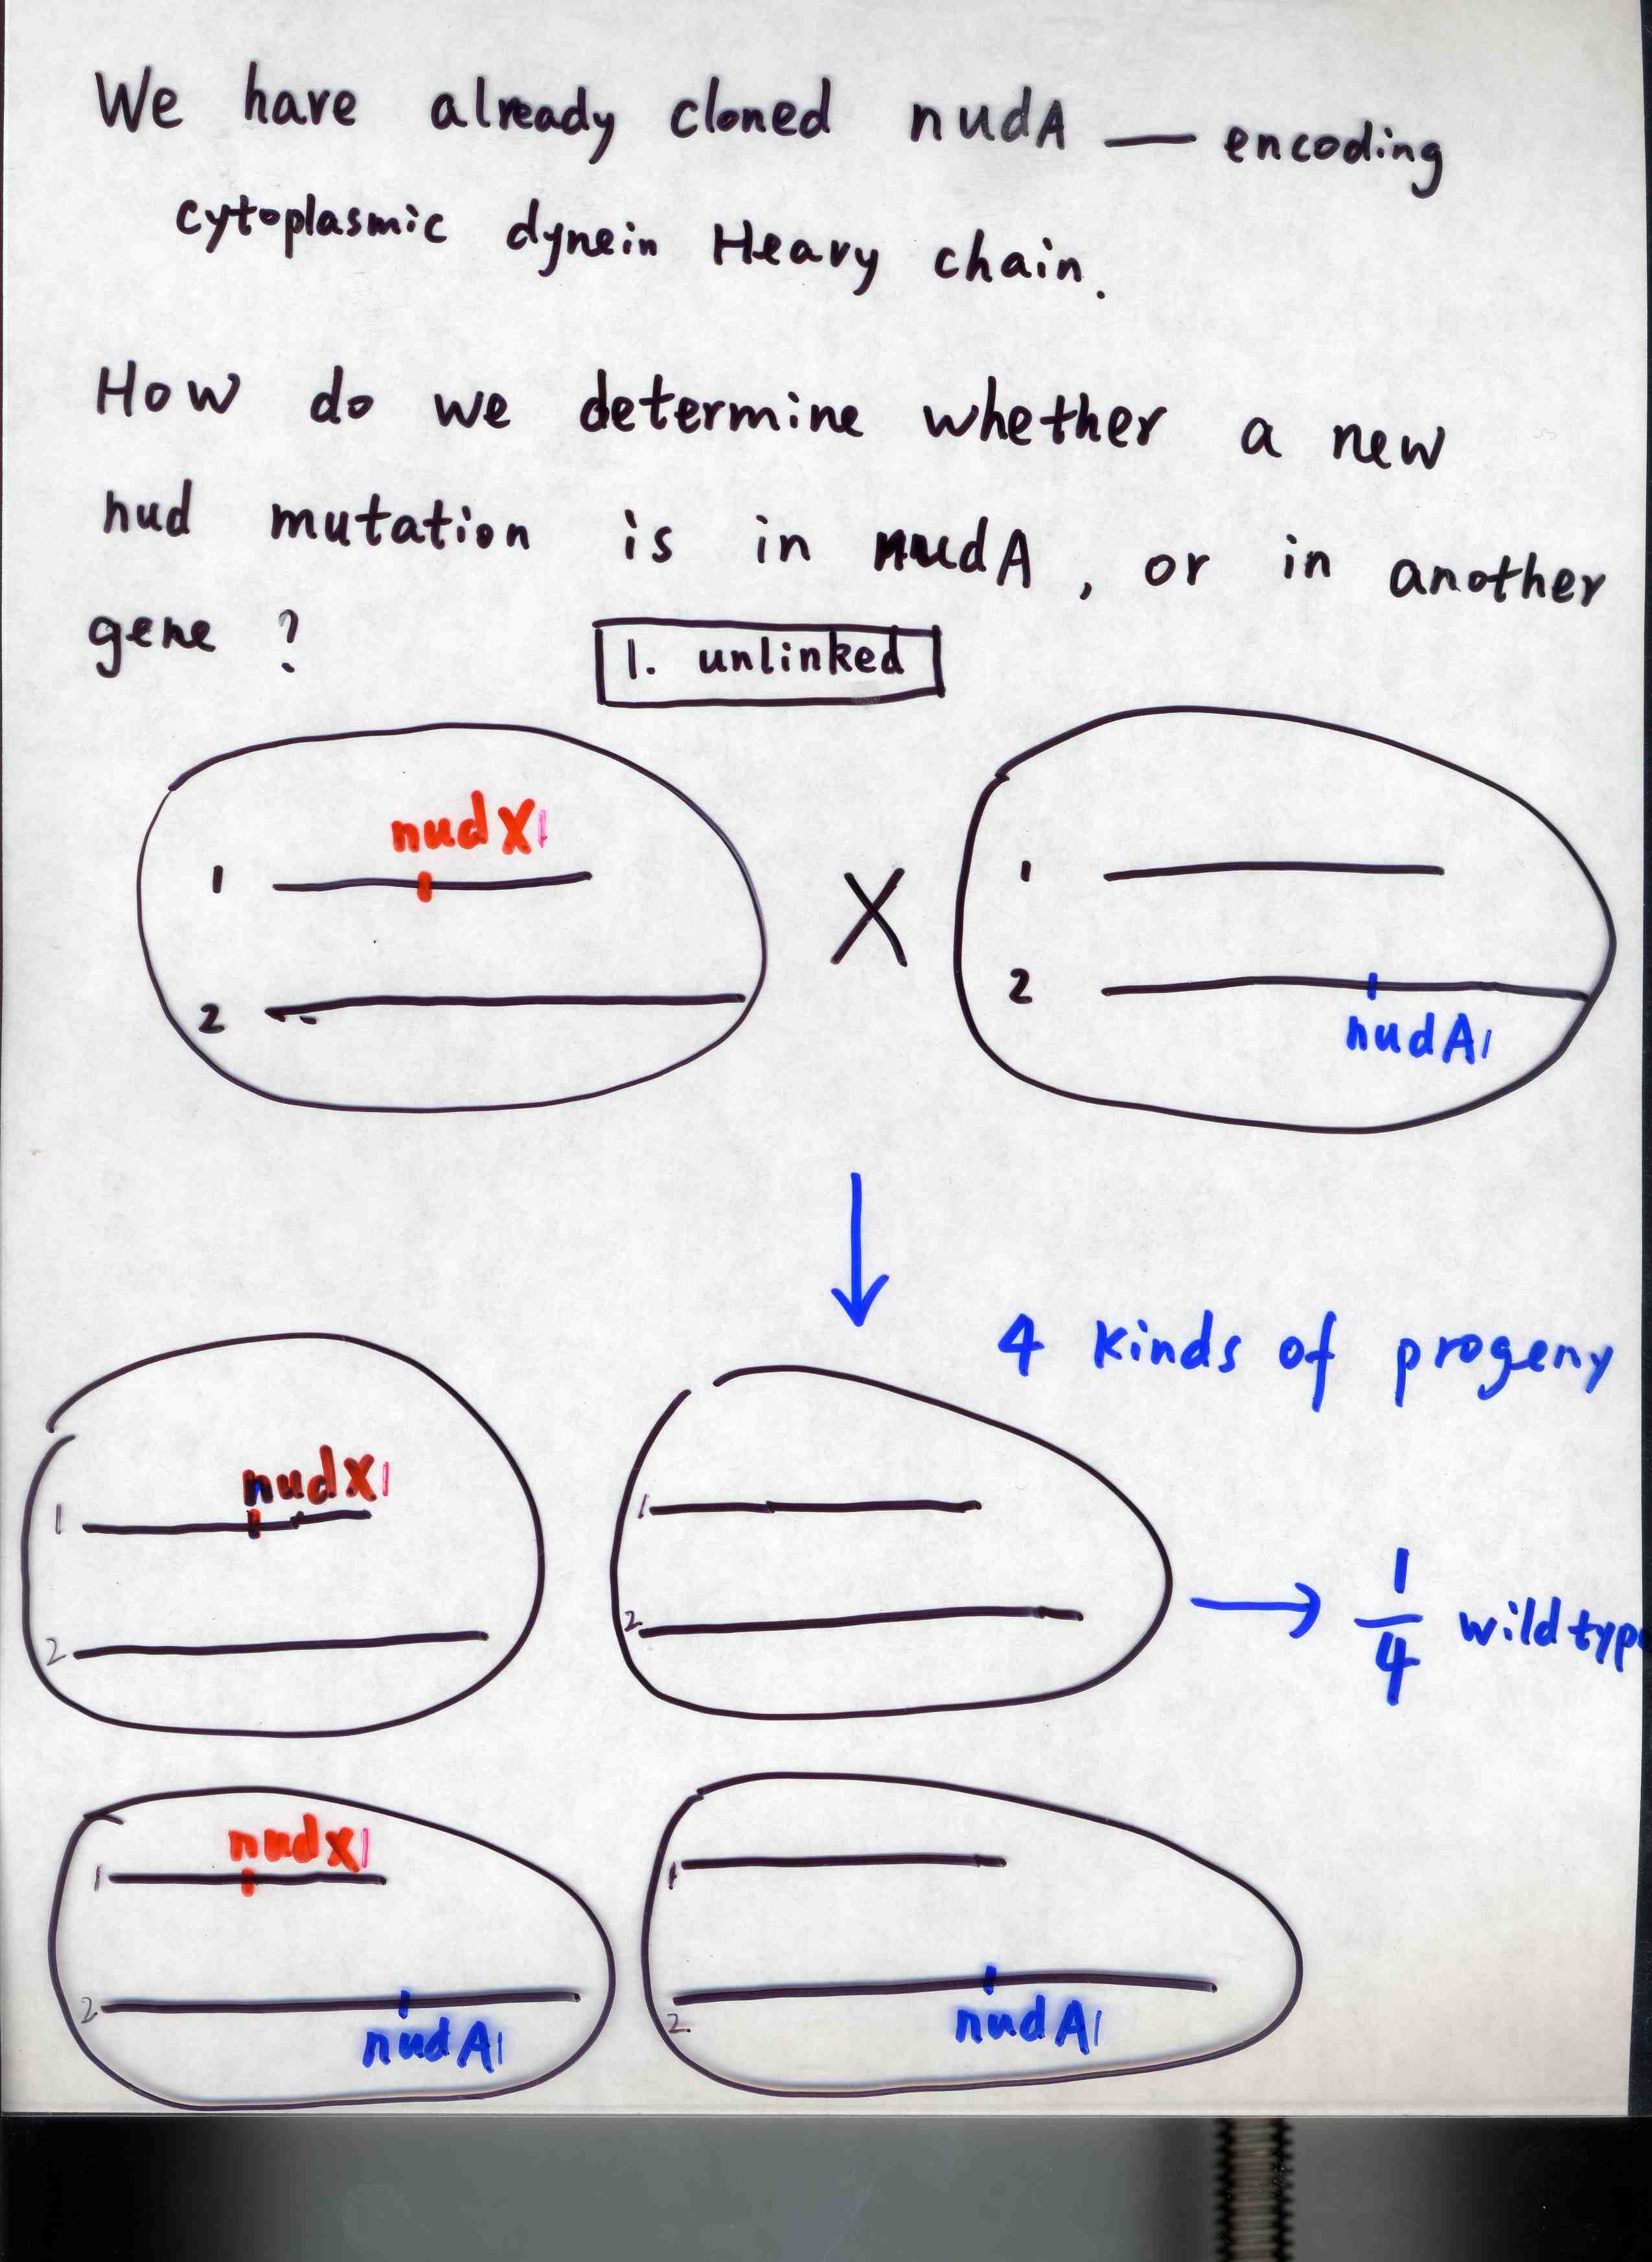 We have already cloned nudA — encoding
cytoplasmic dynein Heavy chain.
How do we determine whether a new
nud mutation is in nudA, or in another
gene ?
1. unlinked
nudX1
1
2
X
1
2
nudA1
4 kinds of progeny
nudX1
1
2
1
2
1/4 wild type
nudX1
1
2
nudA1
1
2
nudA1